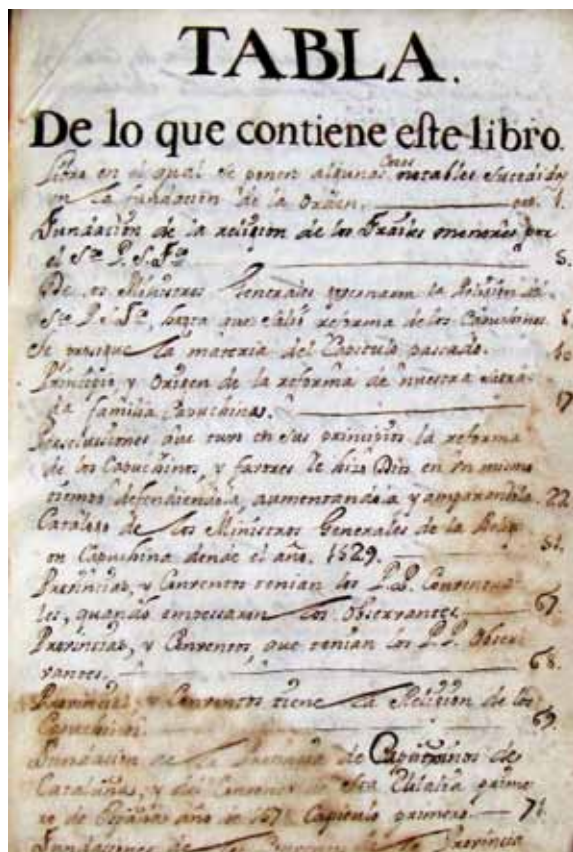 TABLA.
De lo que contiene este libro.
Libro en el qual se ponen algunas Cosas notables
en la fundacion de la Orden. 1.
Fundacion de la religion de los Frailes menores por
el Sto. P. S. Fco. 5.
De los Ministros Generales la Religion
Sto. P. S. Fco, hasta que salió reforma de los Capuchinos.
Se prosigue la materia del Capitulo passado. 10
Principio, y Origen de la reforma de nuestra
da familia Capuchina. 17
que tuvo en sus principios la reforma
de los Capuchinos, y favores le hizo Dios en un mismo
tiempo defendiendola, aumentandola y amparandola. 22
Catalogo de los Ministros Generales de la Relig-
on Capuchina desde el año. 1529. 51.
Provincias, y Conventos tenian los P.P. Conventua-
les, quando empessaron los Observantes. 67.
Provincias, y Conventos, que tenian los P.P. Obser-
vantes. 68.
Provincias, y Conventos tiene la Religion de los
Capuchinos. 69.
Fundacion de la Provincia de Capuchinos de
Cataluña, y del Convento de Sta Eulalia prime-
ro de España año de Capitulo primero. 71.
Fundaciones de la Provincia